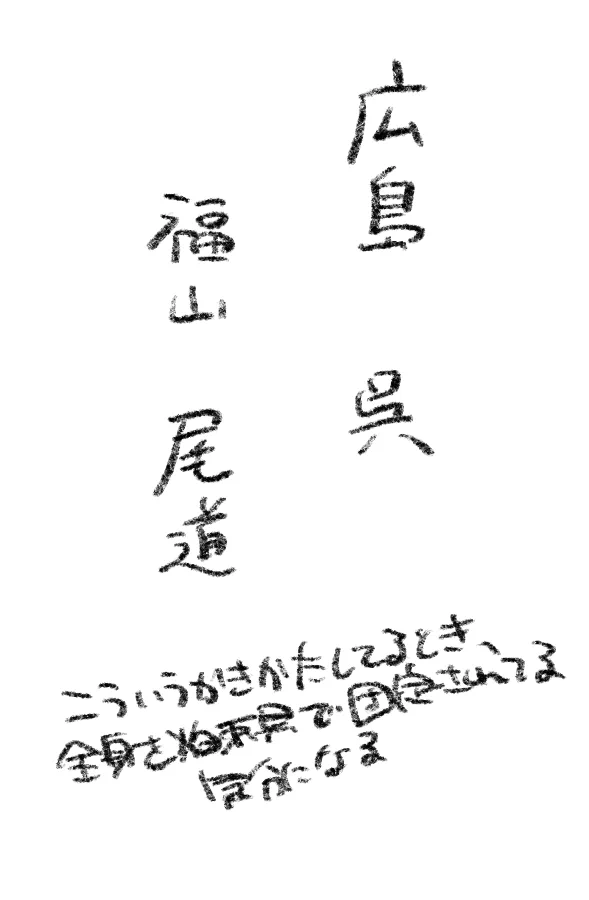 広島 呉
福山 尾道
こういうかきかたしてるとき
全身を拘束具で固定されてる
気分になる